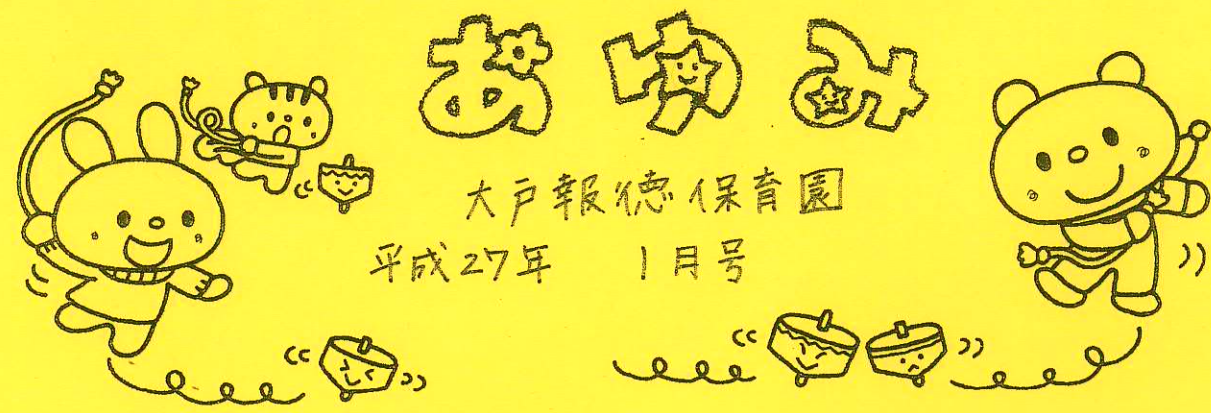 あゆみ
大戸報徳保育園
平成27年 1月号